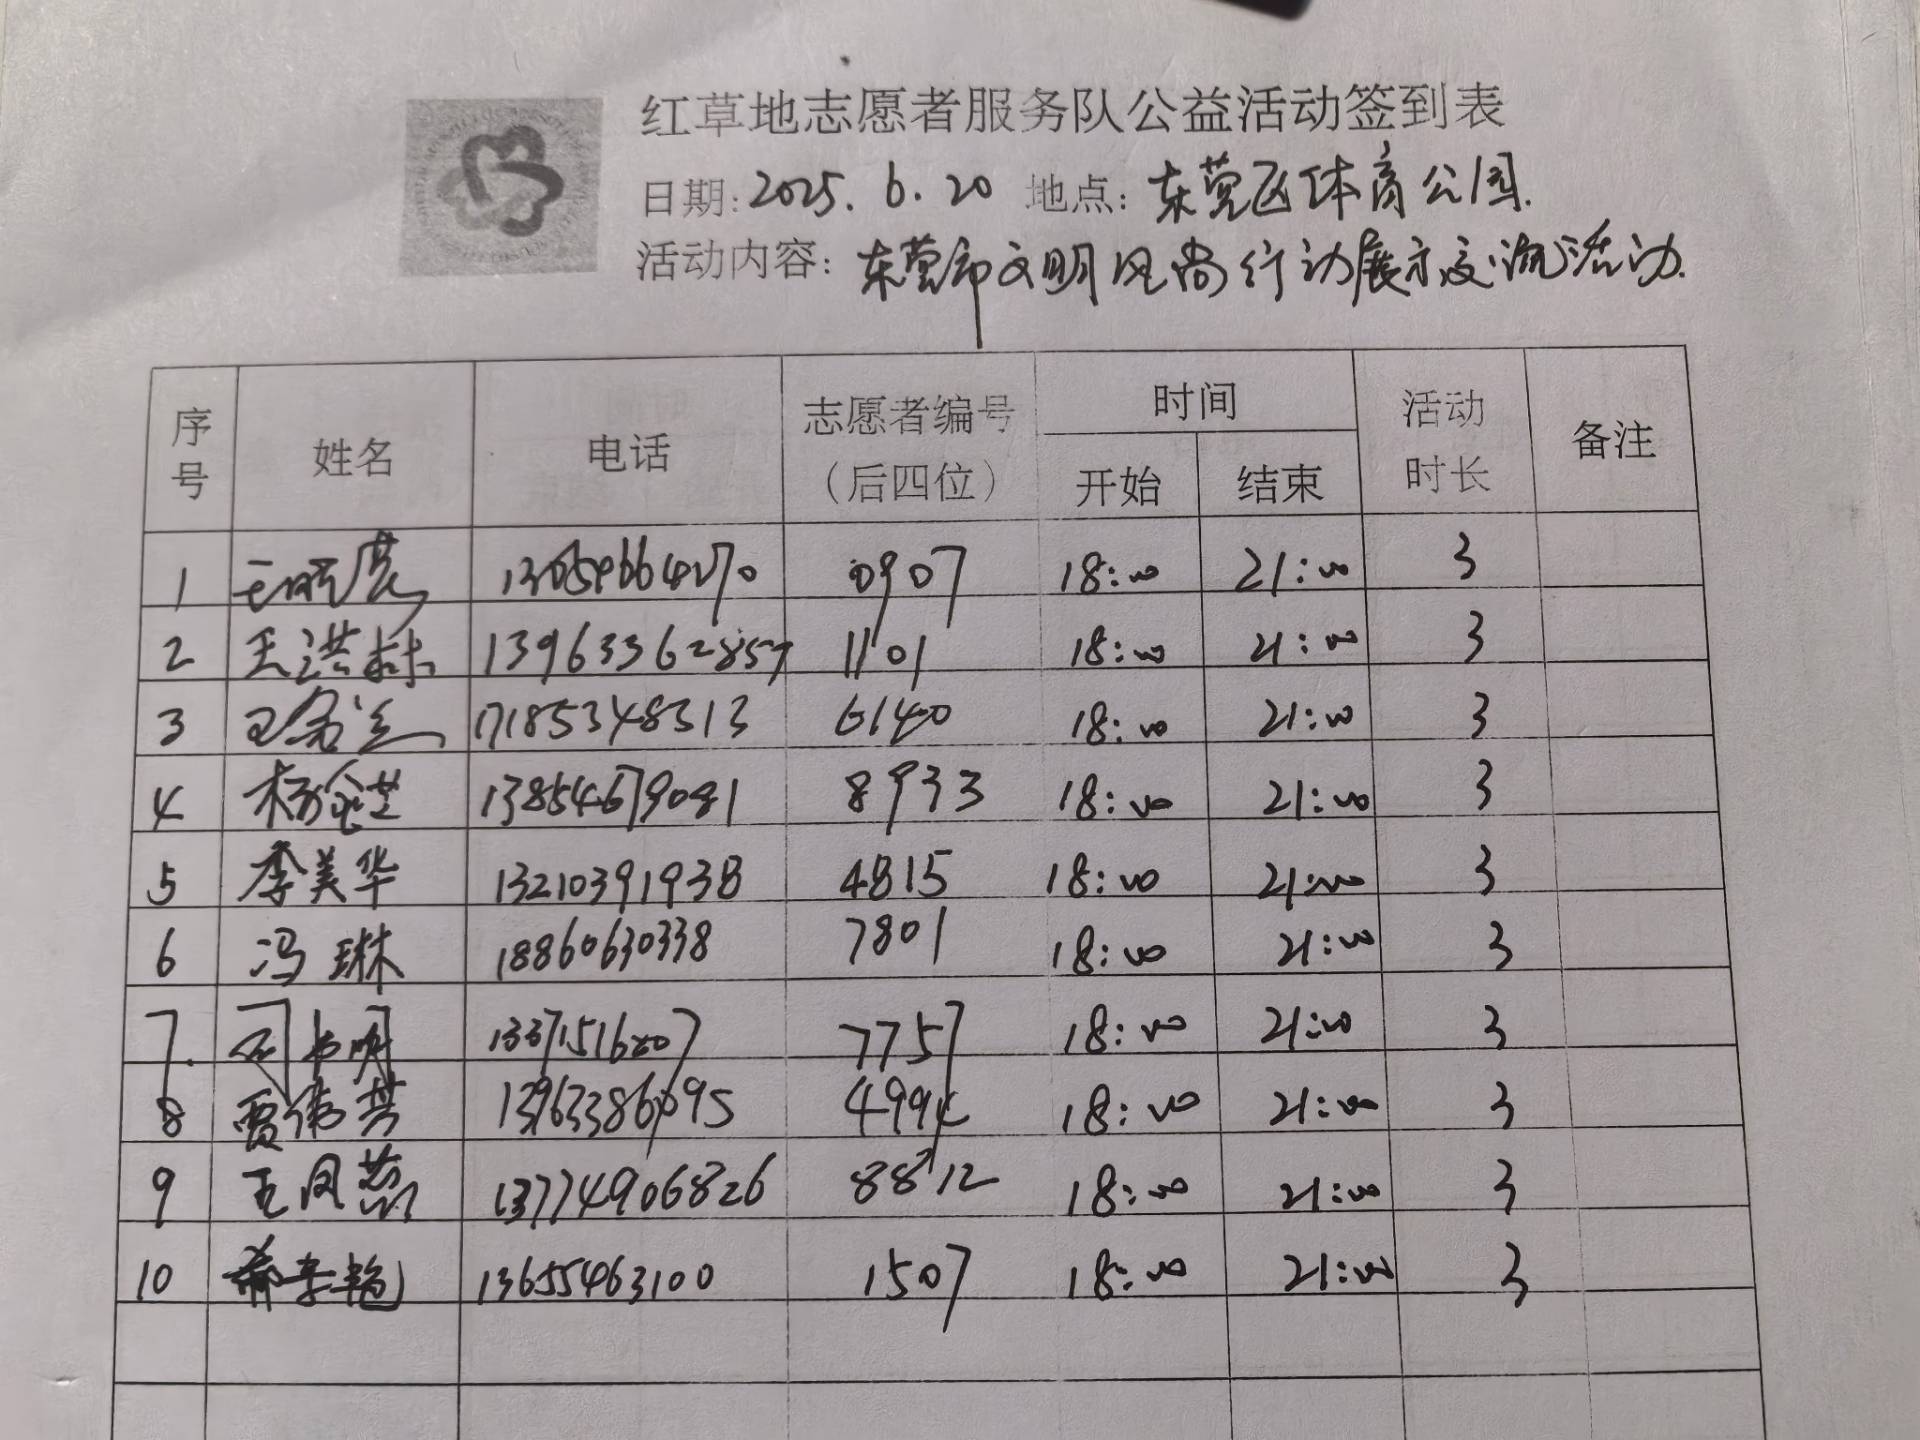 红草地志愿者服务队公益活动签到表
日期: 2025. 6. 20 地点: 东莞区体育公园.
活动内容: 东莞市文明风尚行动展示交流活动.
序号 姓名 电话 志愿者编号（后四位） 时间 开始 结束 活动时长 备注
1 王 0907 18:00 21:00 3
2 王洪林 13963362857 1101 18:00 21:00 3
3 17185348313 6140 18:00 21:00 3
4 杨金芝 13854679081 8933 18:00 21:00 3
5 李美华 13210391938 4815 18:00 21:00 3
6 冯琳 18860630338 7801 18:00 21:00 3
7. 司书明 7757 18:00 21:00 3
8 贾伟芸 13963386695 4994 18:00 21:00 3
9 王凤 13774906826 8812 18:00 21:00 3
10 13655463100 1507 18:00 21:00 3